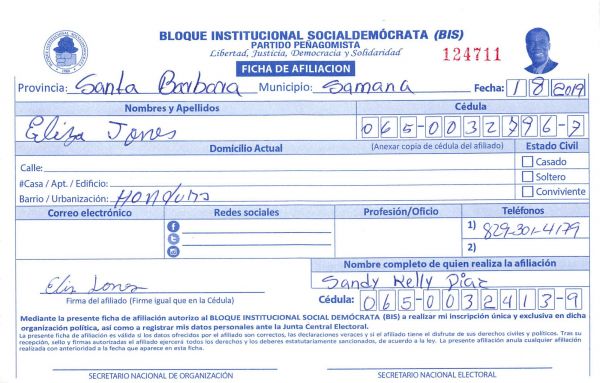 BLOQUE INSTITUCIONAL SOCIALDEMÓCRATA (BIS)
PARTIDO PEÑAGOMISTA
Libertad, Justicia, Democracia y Solidaridad
124711
FICHA DE AFILIACION
Provincia: Santa Barbara Municipio: Samana Fecha: 1 8 2019
Nombres y Apellidos Cédula
Eliza Jones 065-0032796-7
Domicilio Actual (Anexar copia de cédula del afiliado) Estado Civil
Calle: Casado
#Casa / Apt. / Edificio: Soltero
Barrio / Urbanización: Honduras Conviviente
Correo electrónico Redes sociales Profesión/Oficio Teléfonos
1) 829-301-4179
2)
Nombre completo de quien realiza la afiliación
Eliz Jones Sandy Kelly Diaz
Firma del afiliado (Firme igual que en la Cédula) Cédula: 065-0032413-9
Mediante la presente ficha de afiliación autorizo al BLOQUE INSTITUCIONAL SOCIAL DEMÓCRATA (BIS) a realizar mi inscripción única y exclusiva en dicha
organización política, así como a registrar mis datos personales ante la Junta Central Electoral.
La presente ficha de afiliación es válida si los datos ofrecidos por el afiliado son correctos, las declaraciones veraces y si el afiliado tiene el disfrute de sus derechos civiles y políticos. Tras su
recepción, sello y firmas autorizadas el afiliado ejercerá todos los derechos y los deberes estatutariamente sancionados, de acuerdo a la ley. La presente afiliación anula cualquier afiliación
realizada con anterioridad a la fecha que aparece en esta ficha.
SECRETARIO NACIONAL DE ORGANIZACIÓN SECRETARIO NACIONAL ELECTORAL